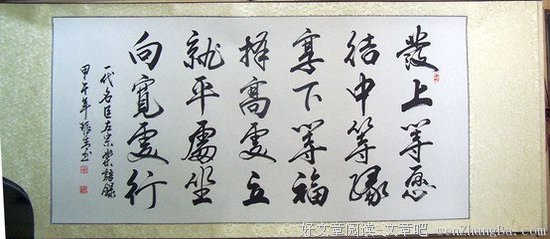 發上等愿
结中等缘
享下等福
择高處立
就平處坐
向寬處行
一代名臣左宗棠語錄
甲午年
好文章阅读 文章吧 wenZhangBa.com